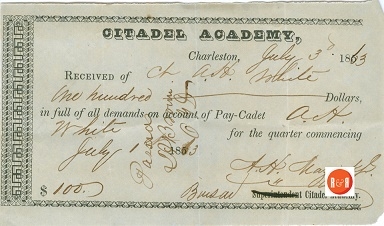 CITADEL ACADEMY,
Charleston, July 3d 1863
RECEIVED OF A. H. White
One hundred Dollars,
in full of all demands on account of Pay-Cadet A. H.
White for the quarter commencing
July 1 1863
$ 100.
Superintendent Citadel Academy.
R&R